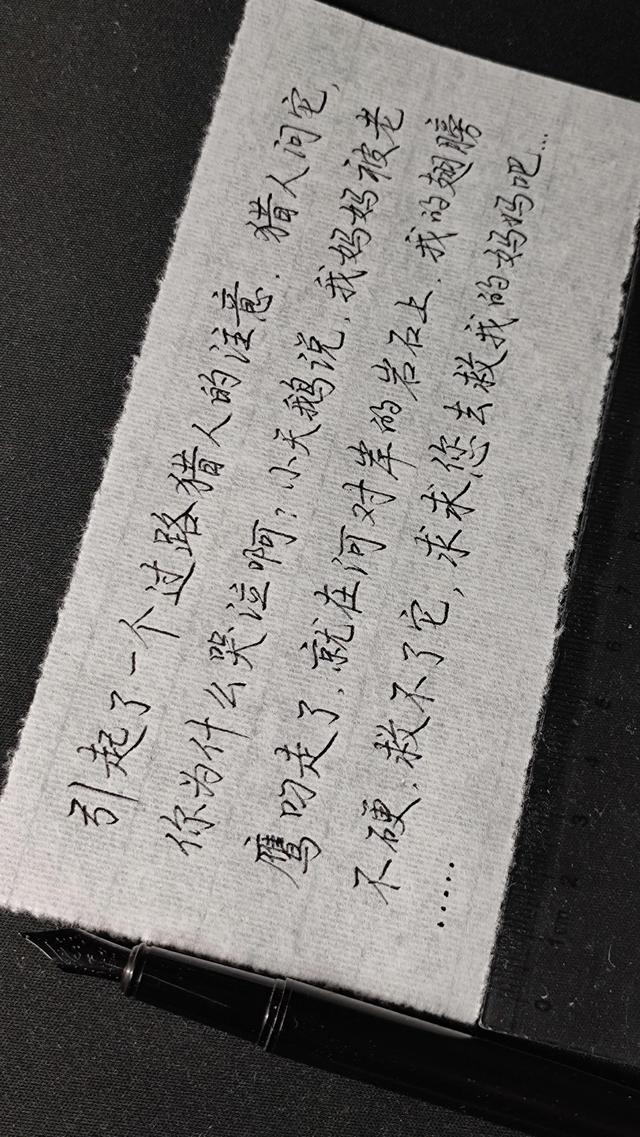 引起了一个过路猎人的注意.猎人问它,
你为什么哭泣啊?小天鹅说,我妈妈被老
鹰叼走了.就在河对岸的岩石上.我的翅膀
不硬.救不了它,求求您去救我的妈妈吧...
......
0 1cm 2 3 4 5 6 7 8